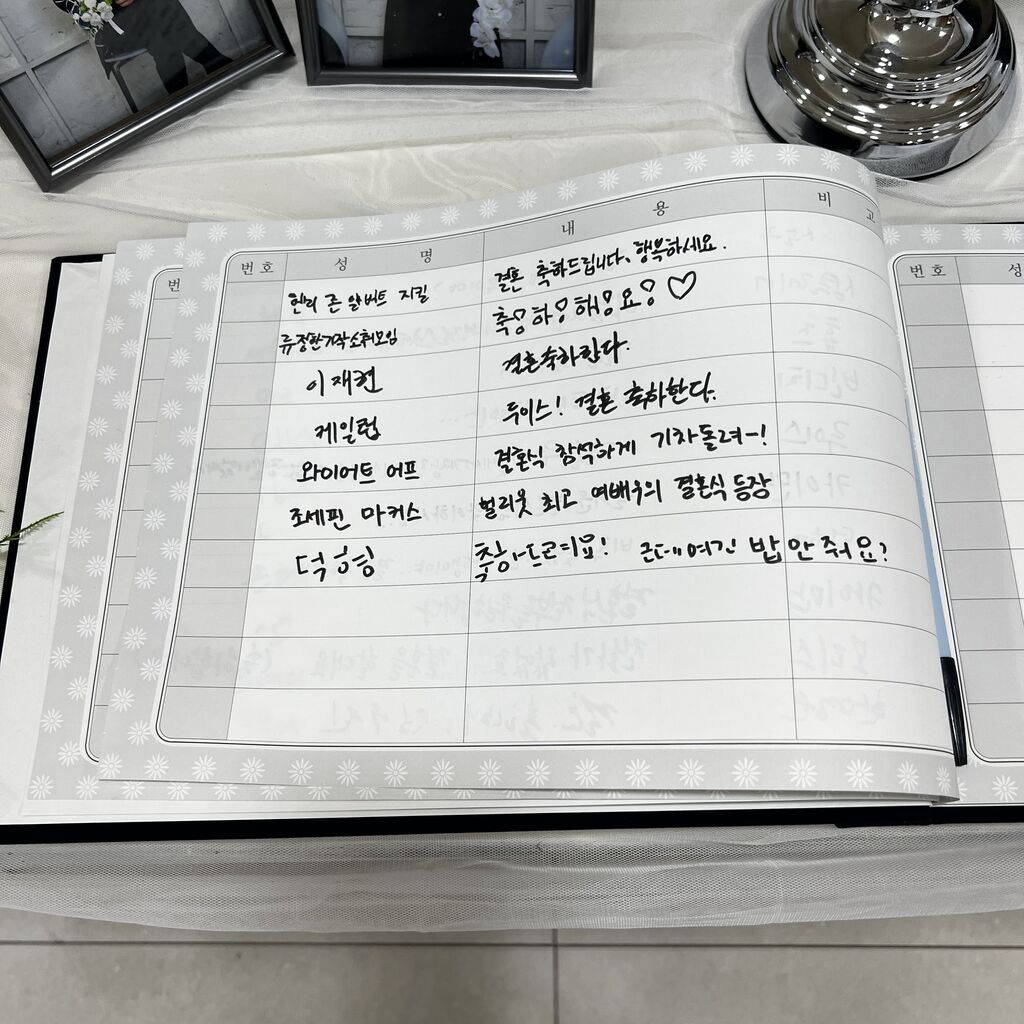 번호 성명 내용 비고
헨리 존 앨버트 지킬 결혼 축하드립니다, 행복하세요.
류정한기작소취모임 축하해요 ♡
이재현 결혼축하한다.
케일럽 두이스! 결혼 축하한다.
와이어트 어프 결혼식 참석하게 기차돌려~!
조세핀 마커스 헐리웃 최고 여배우의 결혼식 등장
덕형 축하드려요! 근데 여긴 밥 안 줘요?
번호 성
번